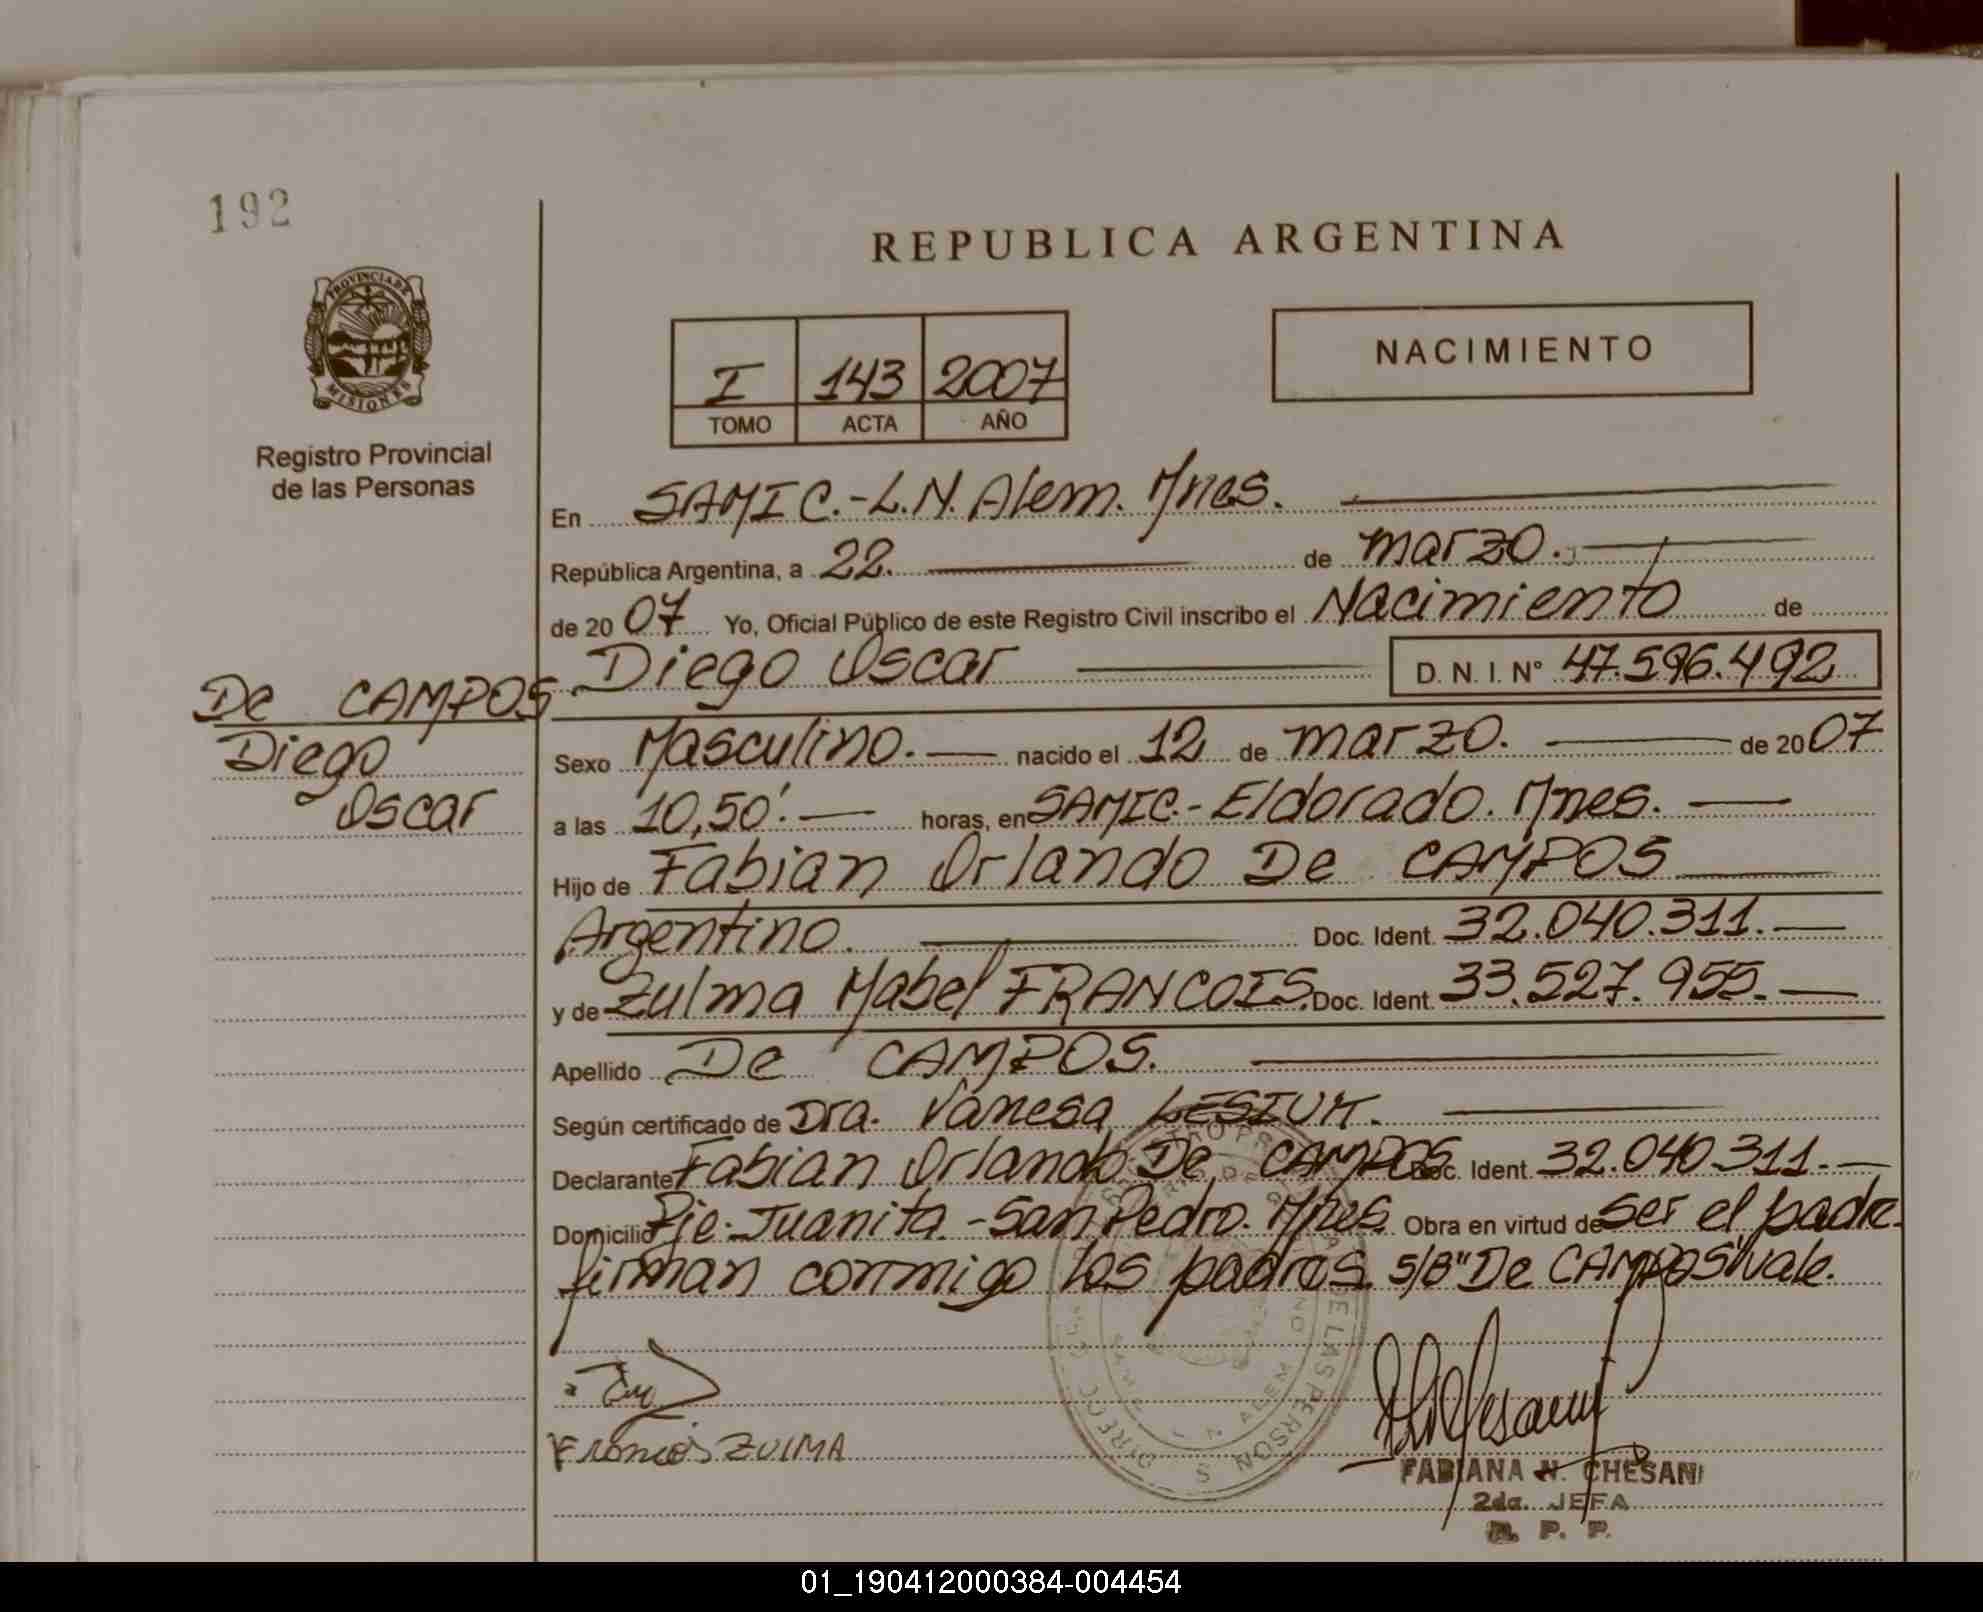 192
REPUBLICA ARGENTINA
PROVINCIA DE
MISIONES
Registro Provincial
de las Personas
I 143 2007
TOMO ACTA AÑO
NACIMIENTO
En SAMIC.-L.N. Alem. Mnes.
República Argentina, a 22. de marzo.
de 2007 Yo, Oficial Público de este Registro Civil inscribo el Nacimiento de
Diego Oscar D. N. I. N° 47.596.492
De CAMPOS
Diego
Oscar
Sexo Masculino. nacido el 12 de marzo. de 2007
a las 10,50'. horas, en SAMIC.- Eldorado. Mnes.
Hijo de Fabian Orlando De CAMPOS
Argentino. Doc. Ident. 32.040.311.
y de Zulma Mabel FRANCOIS. Doc. Ident. 33.527.955.
Apellido De CAMPOS.
Según certificado de Dra. Vanesa
Declarante Fabian Orlando De CAMPOS Doc. Ident. 32.040.311.
Domicilio Pje. Juanita.-San Pedro. Mnes. Obra en virtud de ser el padre.
firman conmigo los padres. S/B "De CAMPOS" Vale.
ZULMA
FABIANA N. CHESANI
2da. JEFA
R. P. P.
01_190412000384-004454